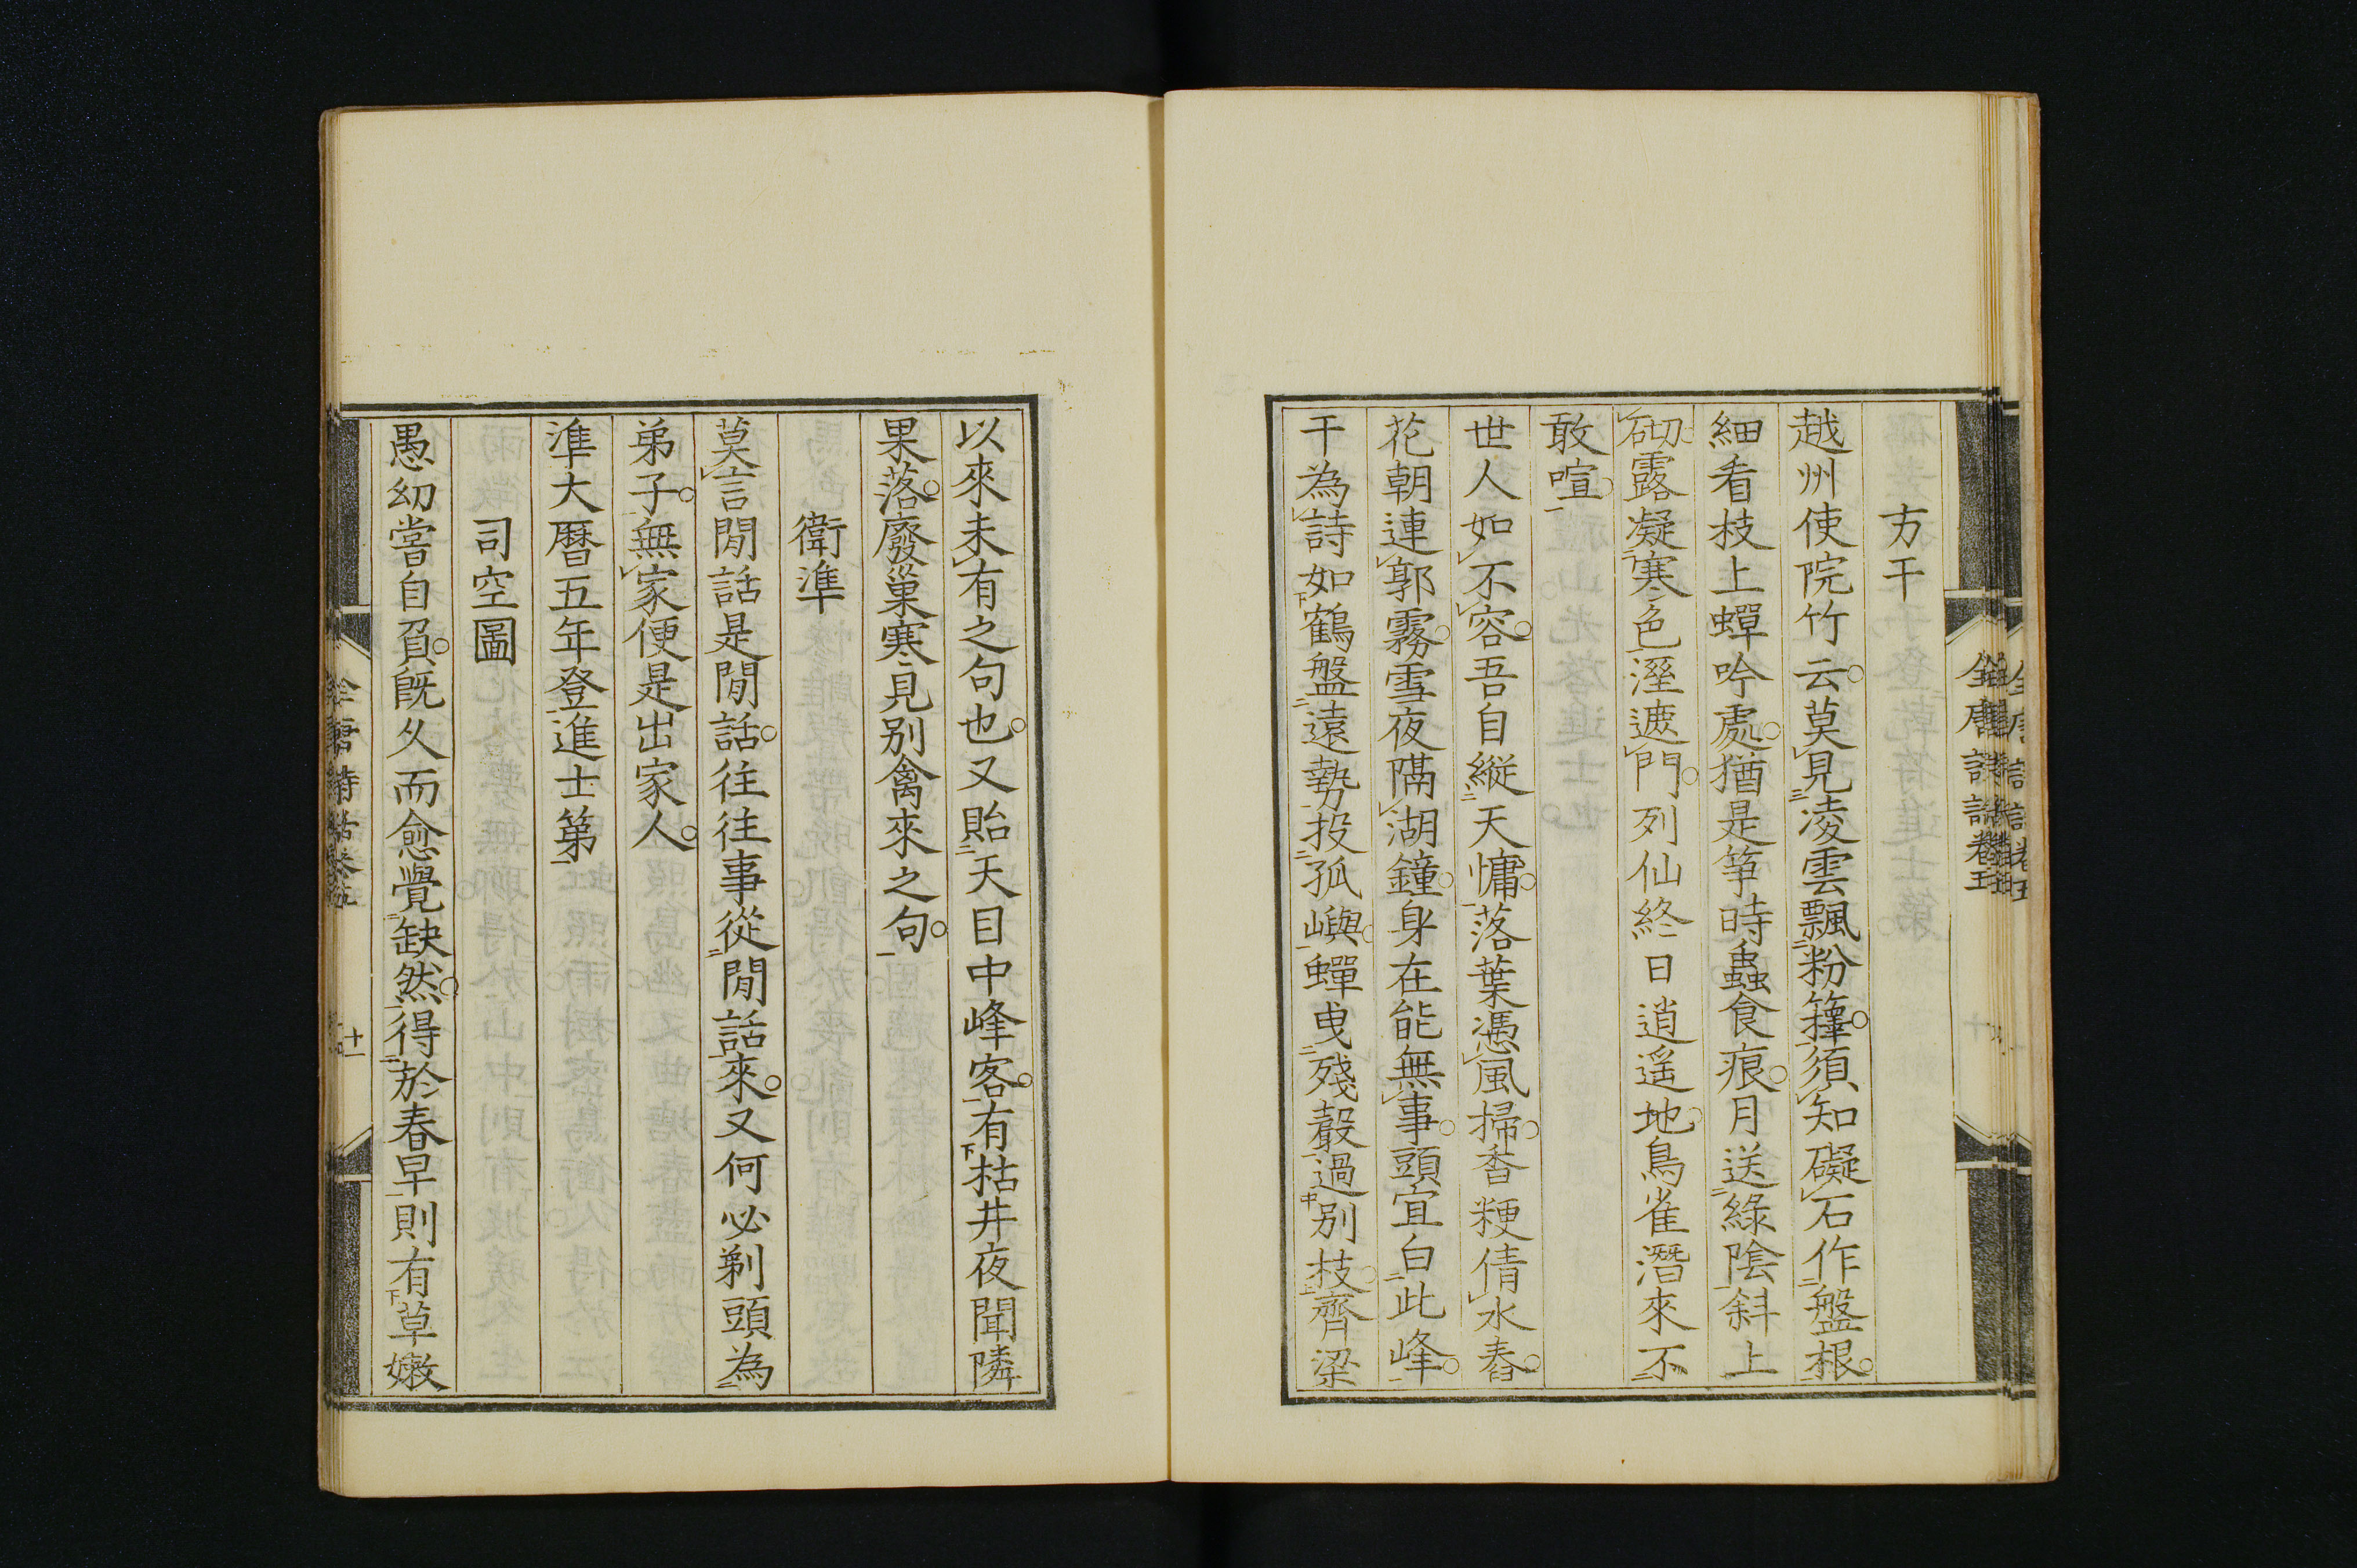 方干
越州使院竹云莫見凌雲飄粉籜須知礙石作盤根
細看枝上蟬吟處猶是筝時蟲食痕月送綠陰斜上
砌露凝寒色溼遮門列仙終日逍遥地鳥雀潛來不
敢喧
世人如不容吾自縱天慵落葉憑風掃香粳倩水舂
花朝連郭霧雪夜隔湖鐘身在能無事頭宜白此峰
干為詩如鶴盤遠勢投孤嶼蟬曳殘聲過別枝齊梁
以來未有之句也又貽天目中峰客有枯井夜聞隣
果落廢巢寒見別禽來之句
衛準
莫言閒話是閒話往往事從閒話來又何必剃頭為
弟子無家便是出家人
準大曆五年登進士第
司空圖
愚幼嘗自負旣久而愈覺缺然得於春早則有草嫩
十一